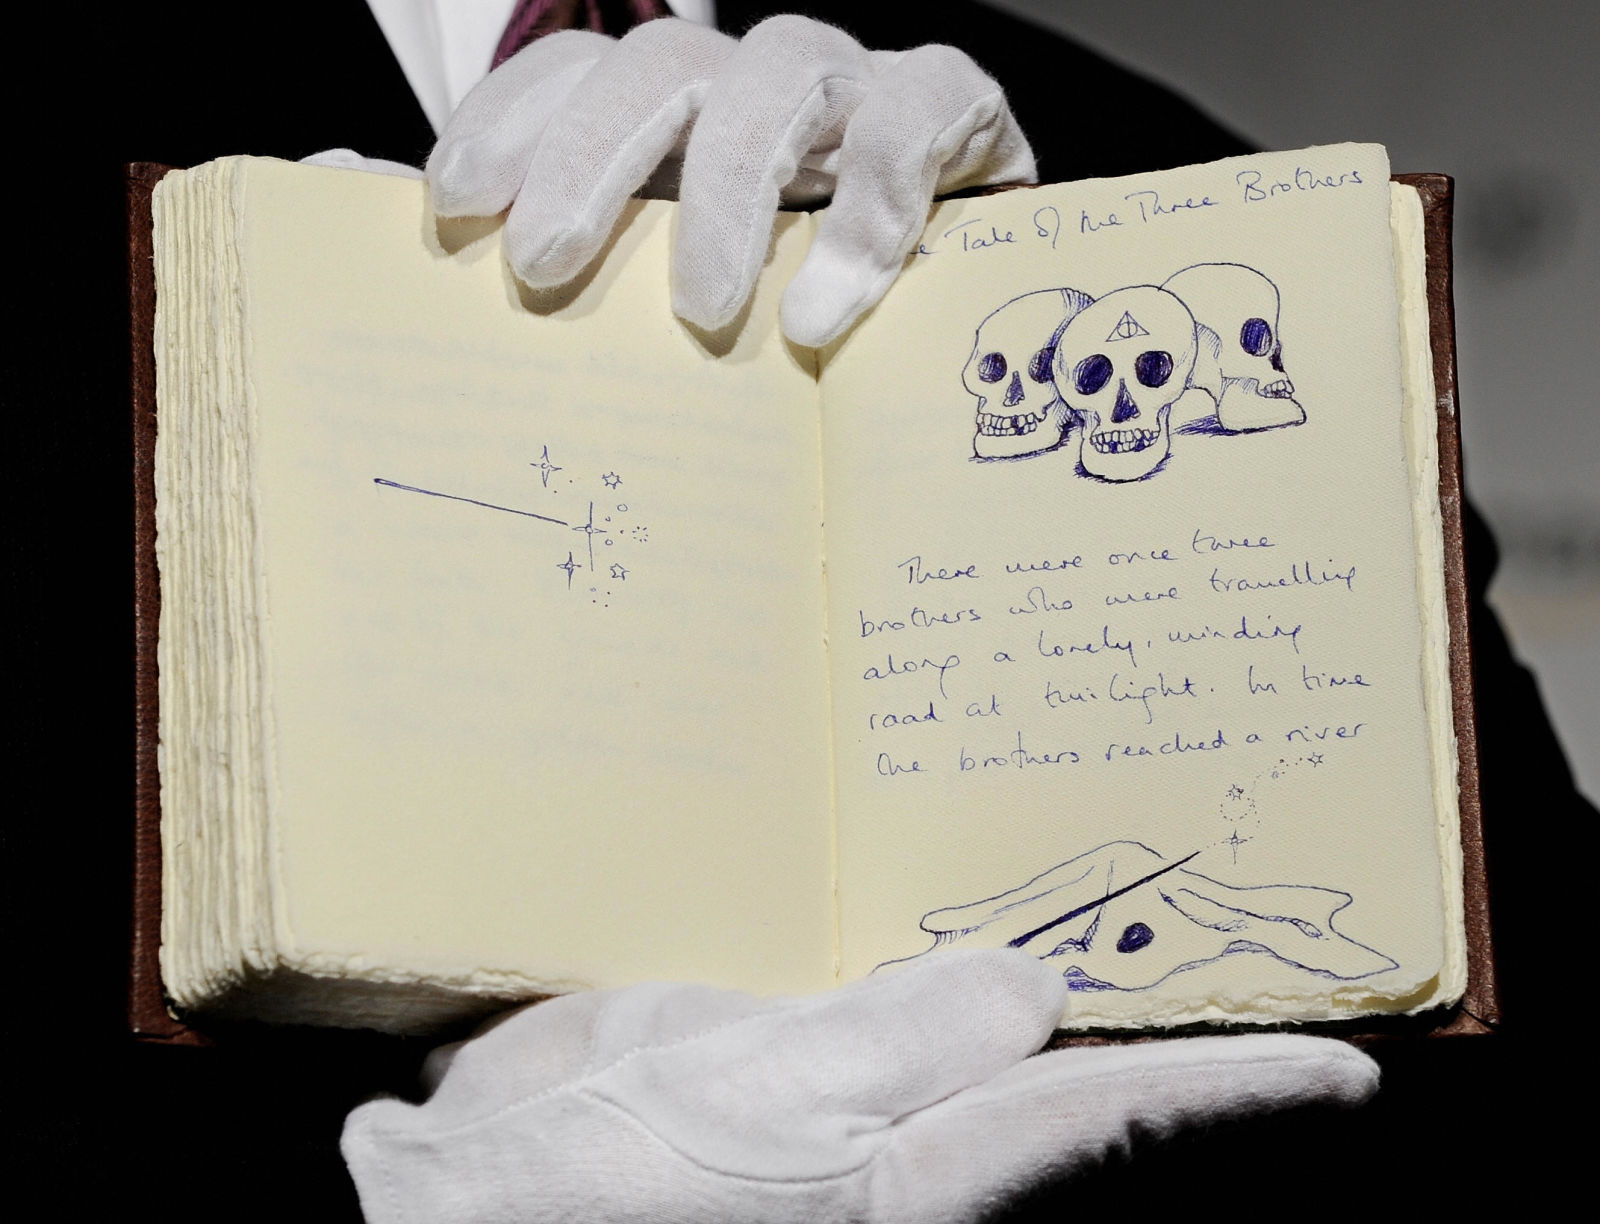 e Tale of the Three Brothers
There were once three
brothers who were travelling
along a lonely, winding
road at twilight. In time
the brothers reached a river